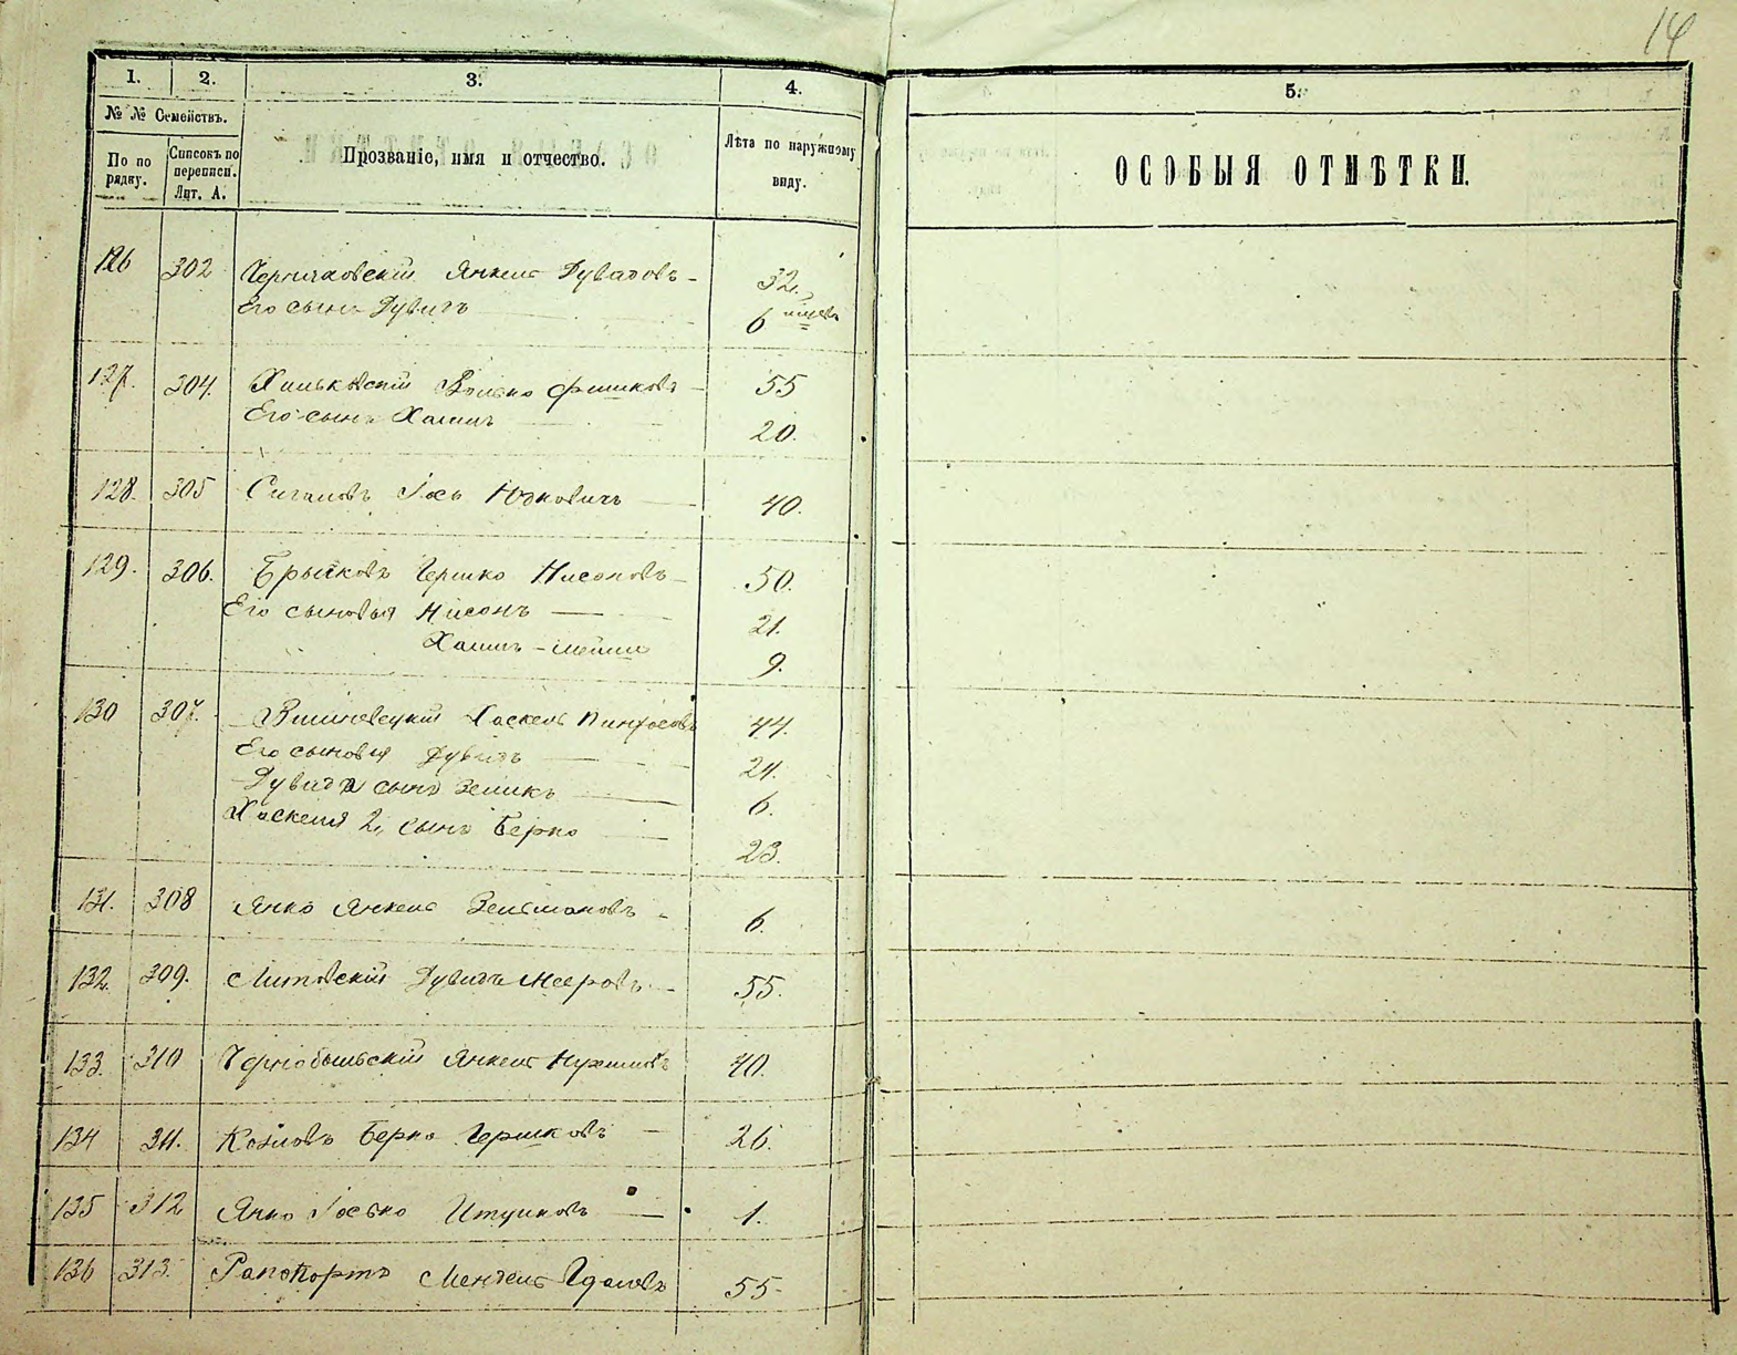 14
1. 2. 3. 4. 5.
№ № Семействъ.
По по
рядку.
Списокъ по
переписи.
Лит. А.
Прозваніе, имя и отчество.
Лѣта по наружному
виду.
ОСОБЫЯ ОТМѢТКИ.
126 302 Янкель Дувидовъ 32.
Его сынъ Дувидъ 6
127. 304. Фишковъ 55
Его сынъ Хаимъ 20.
128. 305 Іось Юдковичъ 40.
129. 306. Брыковъ Гершко Нисоновъ 50.
Его сыновья Нисонъ 21.
Хаимъ 9.
130 307. Вишневецкій Хаскель Пинхосовъ 44.
Его сыновья Дувидъ 24.
Дувида сынъ Зеликъ 6.
Хаскеля 2, сынъ Берко 23.
131. 308 Янко Янкель Зельмановъ 6.
132. 309. Литовскій Дувидъ Мееровъ 55.
133. 310 Чернобыльскій Янкель Нухимовъ 40.
134 311. Козловъ Берко Гершковъ 26.
135 312 Янко Іосько Ицковъ 1.
136 313. Рапопортъ Мендель 55